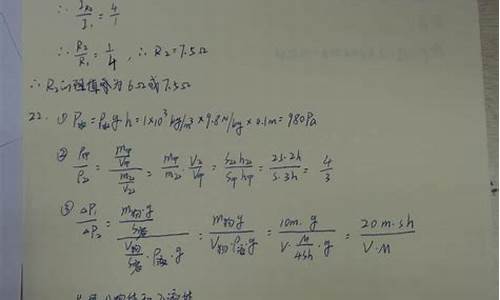 ∴ I_R2/I_1 = 4/1
∴ R2/R1 = 1/4 , ∴ R2=7.5Ω
∴ R2的阻值为6Ω或7.5Ω
22. ① P液=ρ液gh=1×10³kg/m³×9.8N/kg×0.1m=980Pa
② ρ甲/ρ乙 = (m甲/V甲)/(m乙/V乙) = m甲/m乙 · V乙/V甲 = S乙h乙/S甲h甲 = 2S·2h/S·3h = 4/3
③ ΔP1/ΔP2 = (m物·g/S容)/(V物/S容·ρ液·g) = m物·g/V物·ρ液·g = 10m·g/(V·M/4Sh·g) = 20m·sh/V·M